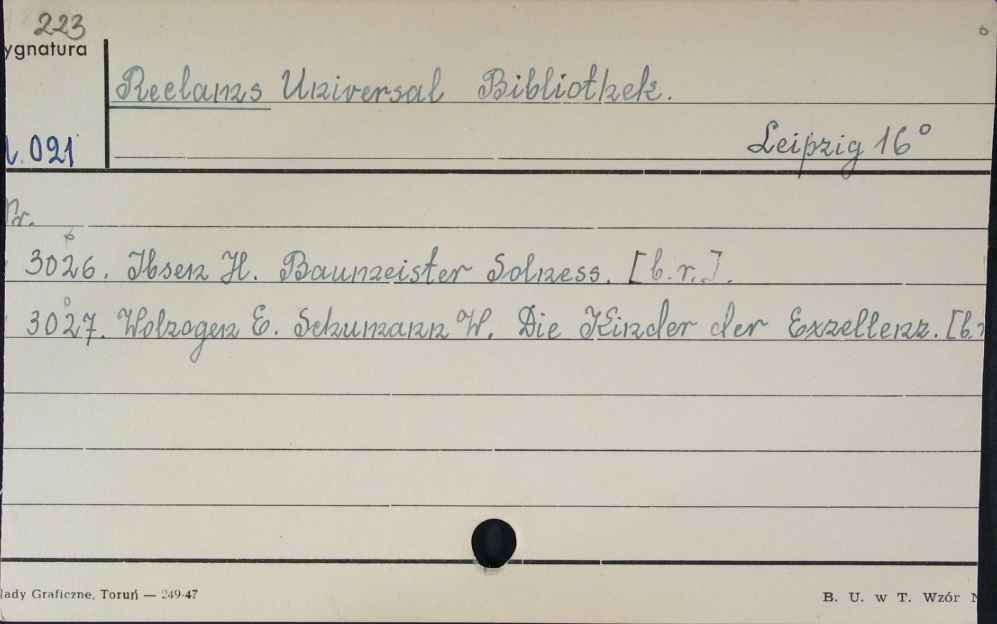 223
ygnatura
Reclams Universal Bibliothek.
021
Leipzig 16°
Nr.
3026. Ibsen H. Baumeister Solness. [b.r.].
3027. Wolzogen E. Schumann W. Die Kinder der Exzellenz. [b.r
lady Graficzne, Toruń — 249-47
B. U. w T. Wzór N